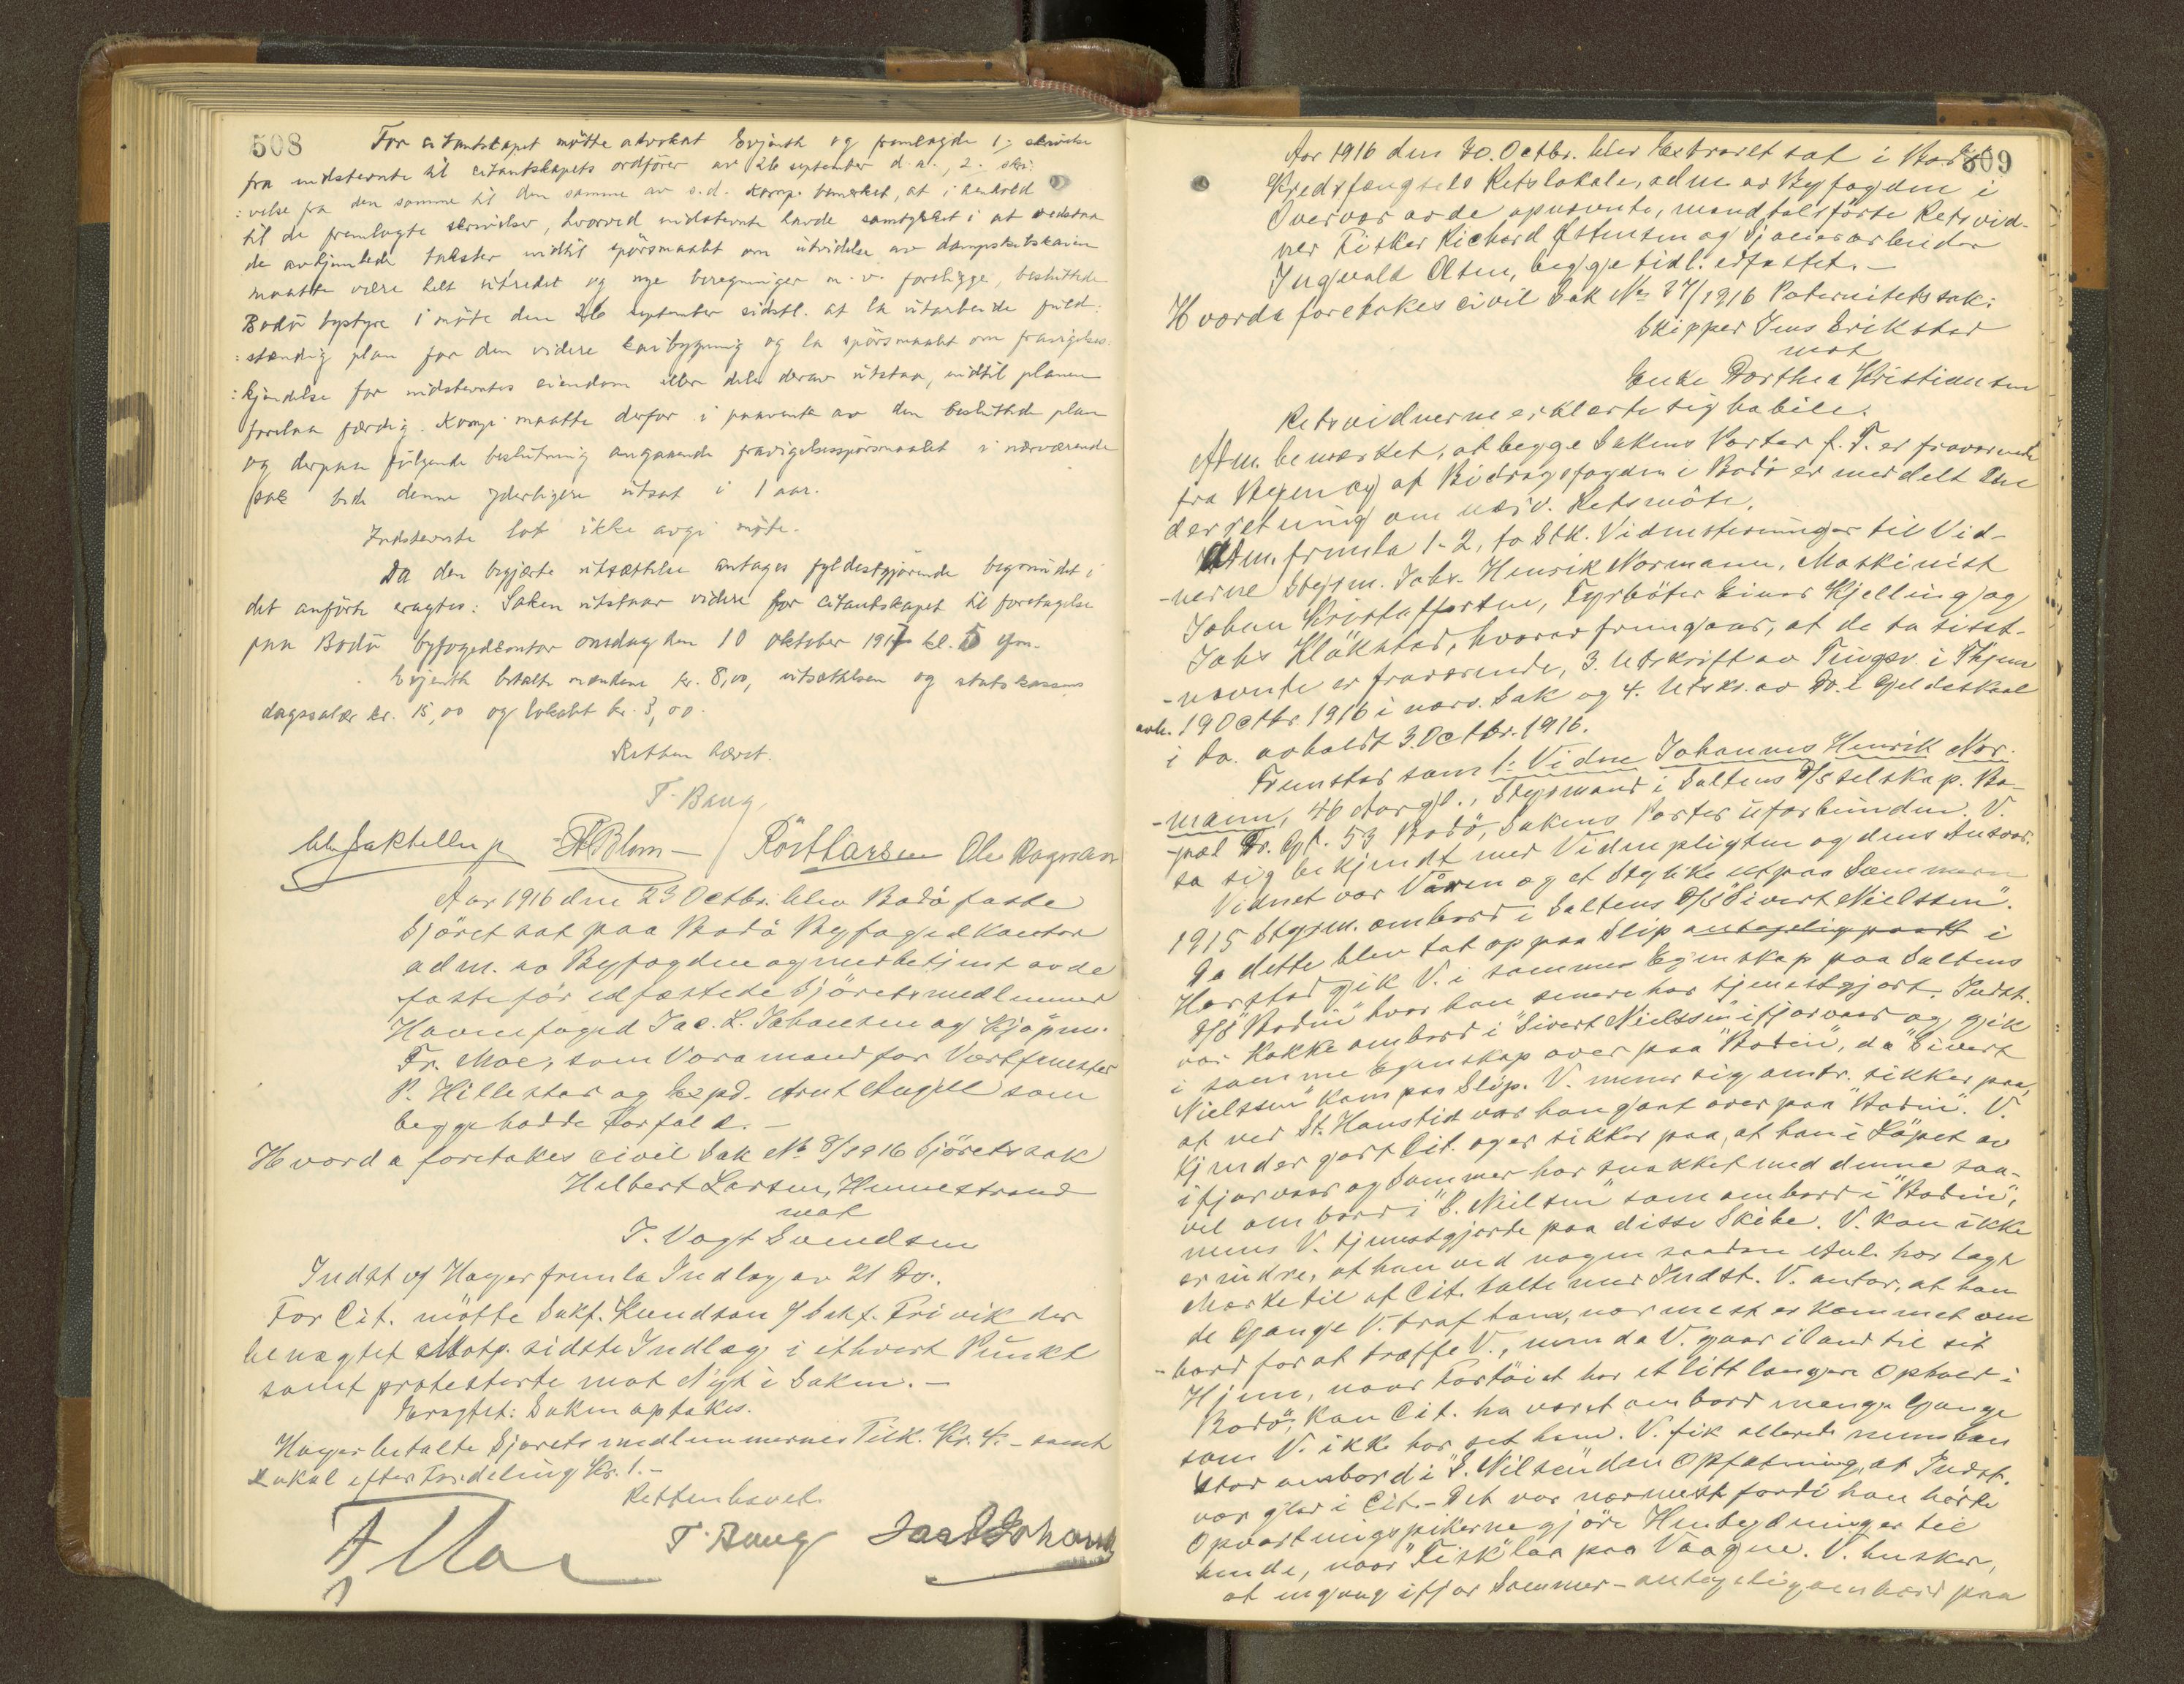 508
For citantskapet mötte advokat Evjenth og fremlagde 1: skrivelse
fra indstevnte til citantskapets ordförer av 26 september d.a., 2. skri:
:velse fra den samme til den samme av s.d. Komp. bemerket, at i henhold
til de fremlagte skrivelser, hvorved indstevnte havde samtykket i at
de avhjemlede takster indtil spörsmaalet om utvidelse av dampskibskaien
maatte være helt utredet og nye beregninger m.v. foreligge, besluttede
Bodö bystyre i möte den 26 september sidstl. at la utarbeide fuld:
:stændig plan for den videre kaibygning og la spörsmaalet om fravigelses:
:kjendelse for indstevntes eiendom eller dele derav utstaa, indtil planen
forelaa færdig. Komp. maatte derfor i paavente av den besluttede plan
og derpaa fölgende beslutning angaaende fravigelsesspörsmaalet i nærværende
sak bede denne yderligere utsat i 1 aar.
Indstevnte lot ikke avgi möte.
Da den begjærte utsættelse antages fyldestgjörende begrundet i
det anförte eragtes: Saken utstaar videre for citantskapet til foretagelse
paa Bodö byfogedkontor onsdag den 10 oktober 1917 kl. 5 em.
Evjenth betalte mændene kr. 8,00, utsættelsen og statskassens
dagssalær kr. 15,00 og lokalet kr. 3,00.
Retten hævet.
T. Baug
Blom Röst Larsen Ole Hagman
Aar 1916 den 23 Octbr. blev Bodö faste
Sjöret sat paa Bodö Byfogedkontor
adm. av Byfogden og medbetjent av de
faste för edfæstede Sjöretsmedlemmer
Havnefoged Jac. L. Johansen og Kjöpm.
Fr. Moe, som Varamand for Værftmester
P. Hillestad og Expd. Arnt Angell som
begge hadde Forfald. -
Hvorda foretakes civil Sak No 8/1916 Sjöretssak
Hilbert Larsen, Hennestrand
mot
J. Vogt Svendsen
Indst v/ Hager fremla Indlæg av 21 Ds.
For Cit. mötte Sakf. Knudsen f/ Sakf. Frivik der
benægtet Motp. sidste Indlæg i ethvert Punkt
samt protesterte mot Nyt i Saken. -
Eragtet: Saken optakes.
Hager betalte Sjöretsmedlemmernes Tilk. Kr. 4. - samt
Lokal efter Fordeling Kr. 1. -
Retten hævet.
F Moe T. Baug Jac L Johansen
509
Aar 1916 den 30. Octbr. blev Extraret sat i Bodö
Kredsfængsels Retslokale, adm. av Byfogden i
Overvær av de opnævnte, mandtalsförte Retsvid-
ner Fisker Richard Östensen og Sjauerarbeider
Ingvald Olsen, begge tidl. edfæstet. -
Hvorda foretakes civil Sak No 27/1916 Paternitetssak:
Skipper Jens Erikstad
mot
Enke Dorthea Kristiansen
Retsvidnerne erklærte sig habile.
Adm. bemærket, at begge Sakens Parter f. T. er fraværende
fra Byen og at Bidragsfogden i Bodö er meddelt Un
derretning om nærv. Retsmöte.
Adm. fremla 1-2, to Stk. Vidnestevninger til Vid-
-nerne Styrm. Johs. Henrik Normann, Maskinist
Johan Kristoffersen, Fyrböter Einar Kjelling og
Johs Kläkstad, hvorav fremgaar, at de to sidst-
-nævnte er fraværende, 3. Utskrift av Tingsv. i Thjem
avh. 19 Octbr. 1916 i nærv. Sak og 4. Utskr. av Do. i Gjeldeskaal
i Do. avholdt 3. Octbr. 1916.
Fremstod som 1. Vidne Johannes Henrik Nor-
-mann, 46 Aar gl., Styrmand i Saltens D/S selskap. Bo-
-pæl Dr. Gt. 53 Bodö, Sakens Parter uforbunden. V.
sa sig bekjendt med Vidnepligten og dens Ansvar.
Vidnet var Vaaren og et Stykke utpaa Sommeren
1915 Styrm. ombord i Saltens D/S "Sivert Nielssen".
Da dette blev tat op paa Slip antagelig paa i
Harstad gik V. i samme Egenskap paa Saltens
D/S "Bodin" hvor han senere har tjenestgjort. Indst.
var Kokke ombord i "Sivert Nielssen" ifjor vaar og gik
i samme Egenskap over paa "Bodin", da "Sivert
Nielssen" kom paa Slip. V. mener sig omtr. sikker paa,
at ved St. Hanstid var han gaat over paa "Bodin". V.
kjender godt Cit. og er sikker paa, at han i Löpet av
ifjor vaar og Sommer har snakket med denne saa-
vel ombord i "S. Nielsen" som ombord i "Bodin",
mens V. tjenestgjorde paa disse Skibe. V. kan ikke
erindre, at han ved nogen saadan Anl. har lagt
Mærke til at Cit. talte med Indst. V. antar, at han
de Gange V. traf ham, nærmest er kommet om
-bord for at træffe V., men da V. gaar iland til sit
Hjem, naar Fartöiet har et litt længere Ophold i
Bodö, kan Cit. ha været ombord mange Gange
som V. ikke har set ham. V. fik allerede mens han
stod ombord i "S. Nilsen" den Opfatning, at Indst.
var glad i Cit. - Det var nærmest fordi han hörte
Opvartningspikerne gjöre Henbydninger til
hende, naar "Fisk" laa paa Vaagene. V. husker,
at engang ifjor Sommer - antagelig ombord paa